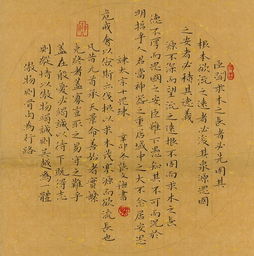 臣聞求木之長者必先固其
根本欲流之遠者必浚其泉源思國
之安者必積其德義
源不深而望流之遠根不固而求木之長
德不厚而思國之安臣雖下愚知其不可而況於
明哲乎人君當神器之重居域中之大不念居安思
諫太宗十思疏 辛卯冬
危戒奢以儉斯亦伐根以求木茂塞源而欲流長也
凡昔元首承天景命善始者實繁
克終者蓋寡豈取之易守之難乎
蓋在殷憂必竭誠以待下既得志
則縱情以傲物竭誠則吳越為一體
傲物則骨肉為行路